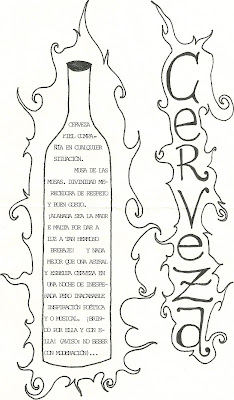 CERVESA
FIEL COMPA-
ÑÍA EN CUALQUIER
SITUACIÓN.
MUSA DE LAS
MUSAS. DIVINIDAD ME-
RECEDORA DE RESPETO
Y BUEN GUSTO.
¡ALABADA SEA LA MADR
E MALTA POR DAR A
LUZ A TAN HERMOSO
BREBAJE! Y NADA
MEJOR QUE UNA ASTRAL
Y ESBELTA CERVEZA EN
UNA NOCHE DE INESPE-
RADA PERO INACABABLE
INSPIRACIÓN POÉTICA
Y O MUSICAL. ¡BRIN-
DO POR ELLA Y CON E-
LLA! (AVISO: NO BEBER
CON MODERACIÓN)...
Cerveza